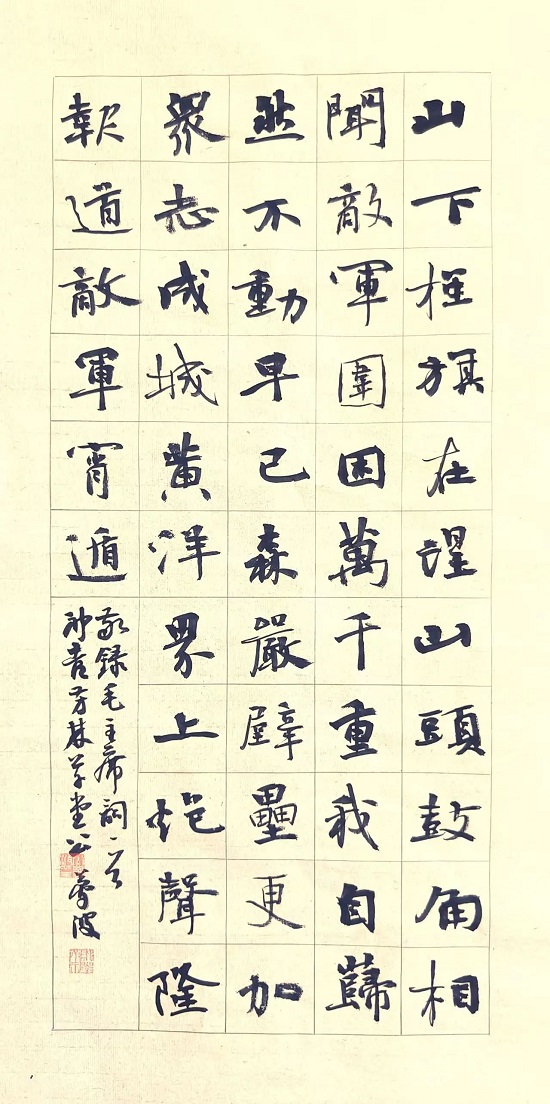 山下旌旗在望山頭鼓角相
聞敵軍圍困萬千重我自巋
然不動早已森嚴壁壘更加
衆志成城黃洋界上炮聲隆
報道敵軍宵遁
敬錄毛主席詞一首
芳林草堂